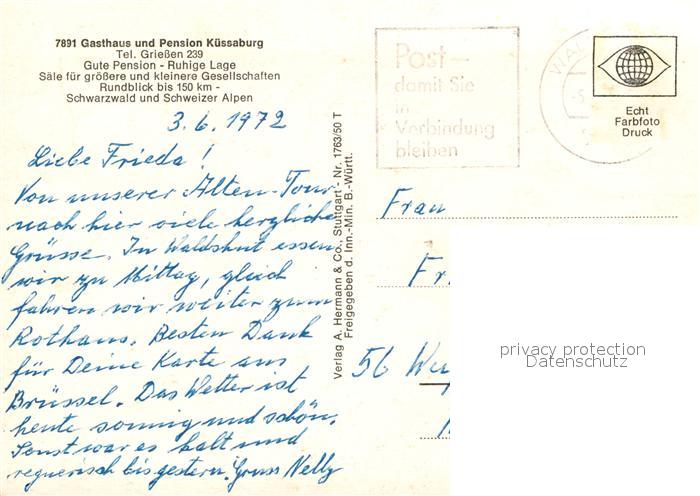 7891 Gasthaus und Pension Küssaburg
Tel. Grießen 239
Gute Pension - Ruhige Lage
Säle für größere und kleinere Gesellschaften
Rundblick bis 150 km -
Schwarzwald und Schweizer Alpen
3.6.1972
Liebe Frieda!
Von unserer Alten-Tour
nach hier viele herzliche
Grüsse. In Waldshut essen
wir zu Mittag, gleich
fahren wir weiter zum
Rothaus. Besten Dank
für Deine Karte aus
Brüssel. Das Wetter ist
heute sonnig und schön.
Sonst war es kalt und
regnerisch bis gestern. Gruss Nelly
Verlag A. Hermann & Co., Stuttgart - Nr. 1763/50 T
Freigegeben d. Inn.-Min. B.-Württ.
Post –
damit Sie
in
Verbindung
bleiben
WAL
Echt
Farbfoto
Druck
Frau
Fr
56 Wu
privacy protection
Datenschutz